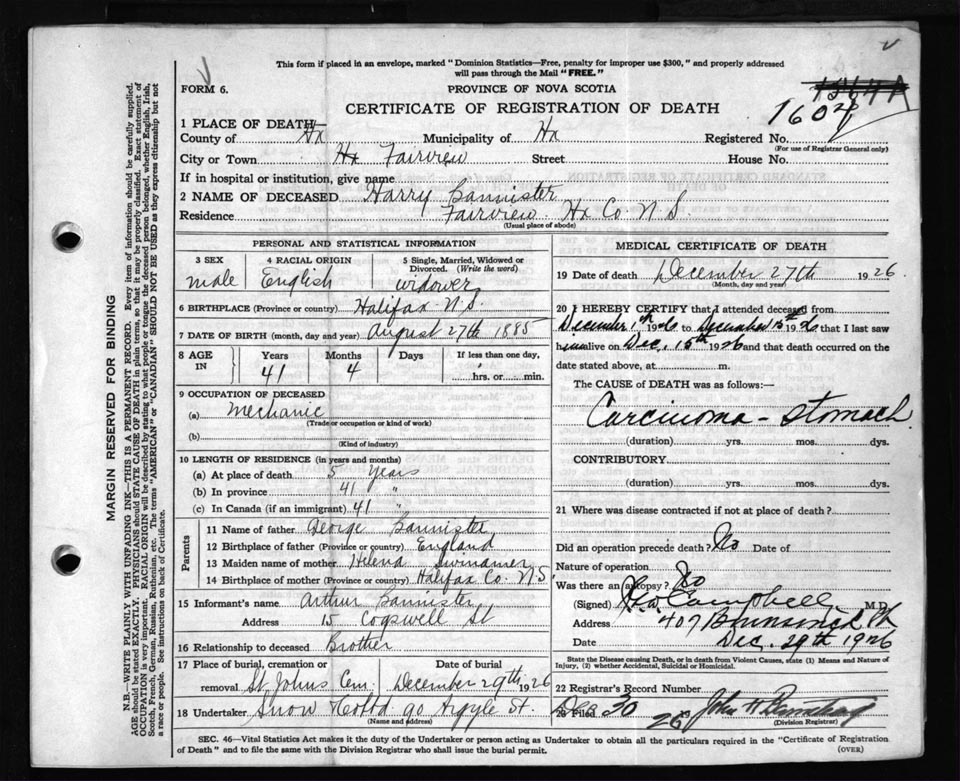 This form if placed in an envelope, marked "Dominion Statistics—Free, penalty for improper use $300," and properly addressed
will pass through the Mail "FREE."
FORM 6.
PROVINCE OF NOVA SCOTIA
CERTIFICATE OF REGISTRATION OF DEATH
1564A
1607
1 PLACE OF DEATH—
County of Hx Municipality of Hx Registered No.
(For use of Registrar General only)
City or Town Hx Fairview Street House No.
If in hospital or institution, give name
2 NAME OF DECEASED Harry Bannister
Residence Fairview Hx Co. N.S.
(Usual place of abode)
PERSONAL AND STATISTICAL INFORMATION
3 SEX male
4 RACIAL ORIGIN English
5 Single, Married, Widowed or Divorced. (Write the word) widower
6 BIRTHPLACE (Province or country) Halifax N.S.
7 DATE OF BIRTH (month, day and year) August 27th 1885
8 AGE IN Years 41 Months 4 Days If less than one day, hrs. or min.
9 OCCUPATION OF DECEASED
(a) Mechanic
(Trade or occupation or kind of work)
(b)
(Kind of industry)
10 LENGTH OF RESIDENCE (in years and months)
(a) At place of death 5 Years
(b) In province 41 "
(c) In Canada (if an immigrant) 41 "
Parents
11 Name of father George Bannister
12 Birthplace of father (Province or country) England
13 Maiden name of mother Helena Swinamer
14 Birthplace of mother (Province or country) Halifax Co. N.S
15 Informant's name Arthur Bannister
Address 15 Cogswell St
16 Relationship to deceased Brother
17 Place of burial, cremation or removal St. Johns Cem. Date of burial December 29th 1926
18 Undertaker Snow Co Ltd 90 Argyle St.
(Name and address)
MEDICAL CERTIFICATE OF DEATH
19 Date of death December 27th 1926
(Month, day and year)
20 I HEREBY CERTIFY that I attended deceased from
December 1st 1926 to December 15th 1926 that I last saw
him alive on Dec. 15th 1926 and that death occurred on the
date stated above, at m.
The CAUSE of DEATH was as follows:—
Carcinoma - Stomach
(duration) yrs. mos. dys.
CONTRIBUTORY
(duration) yrs. mos. dys.
21 Where was disease contracted if not at place of death?
Did an operation precede death? No Date of
Nature of operation
Was there an autopsy? No
(Signed) Campbell M.D.
Address 407 Brunswick St
Date Dec. 29th 1926
State the Disease causing Death, or in death from Violent Causes, state (1) Means and Nature of
Injury, (2) whether Accidental, Suicidal or Homicidal.
22 Registrar's Record Number
23 Filed Dec 30 26 John H
(Division Registrar)
SEC. 46—Vital Statistics Act makes it the duty of the Undertaker or person acting as Undertaker to obtain all the particulars required in the "Certificate of Registration
of Death" and to file the same with the Division Registrar who shall issue the burial permit.
(OVER)
MARGIN RESERVED FOR BINDING
N.B.—WRITE PLAINLY WITH UNFADING INK—THIS IS A PERMANENT RECORD. Every item of information should be carefully supplied.
AGE should be stated EXACTLY. PHYSICIANS should STATE CAUSE OF DEATH in plain terms, so that it may be properly classified. Exact statement of
OCCUPATION is very important. RACIAL ORIGIN will be described by stating to what people or tongue the deceased person belonged, whether English, Irish,
Scotch, French, German, Russian, Ruthenian, etc. The terms "AMERICAN" or "CANADIAN" SHOULD NOT BE USED as they express citizenship but not
a race or people. See instructions on back of Certificate.